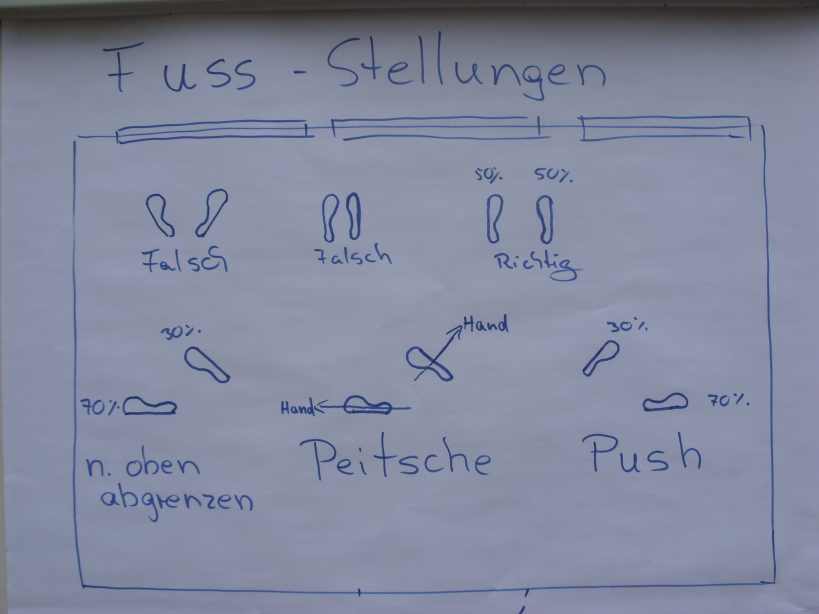 Fuss - Stellungen
50% 50%
Falsch Falsch Richtig
30% Hand 30%
70% Hand 70%
n. oben abgrenzen
Peitsche
Push